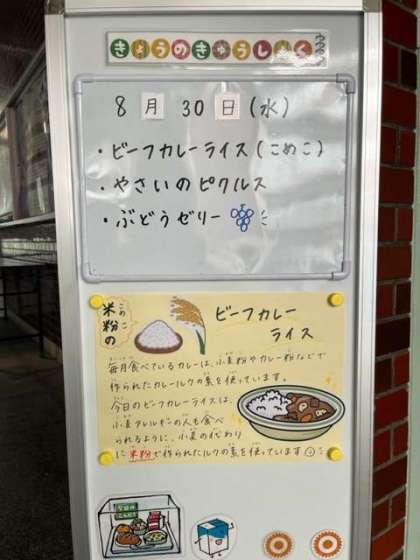 きょうのきゅうしょく
8月30日(水)
・ビーフカレーライス(こめこ)
・やさいのピクルス
・ぶどうゼリー
こめこ
米粉の
ビーフカレー
ライス
毎月食べているカレーは、小麦粉やカレー粉などで
作られたカレールウの素を使っています。
今日のビーフカレーライスは、
小麦アレルギーの人も食べ
られるように、小麦の代わり
に米粉で作られたルウの素を使っています